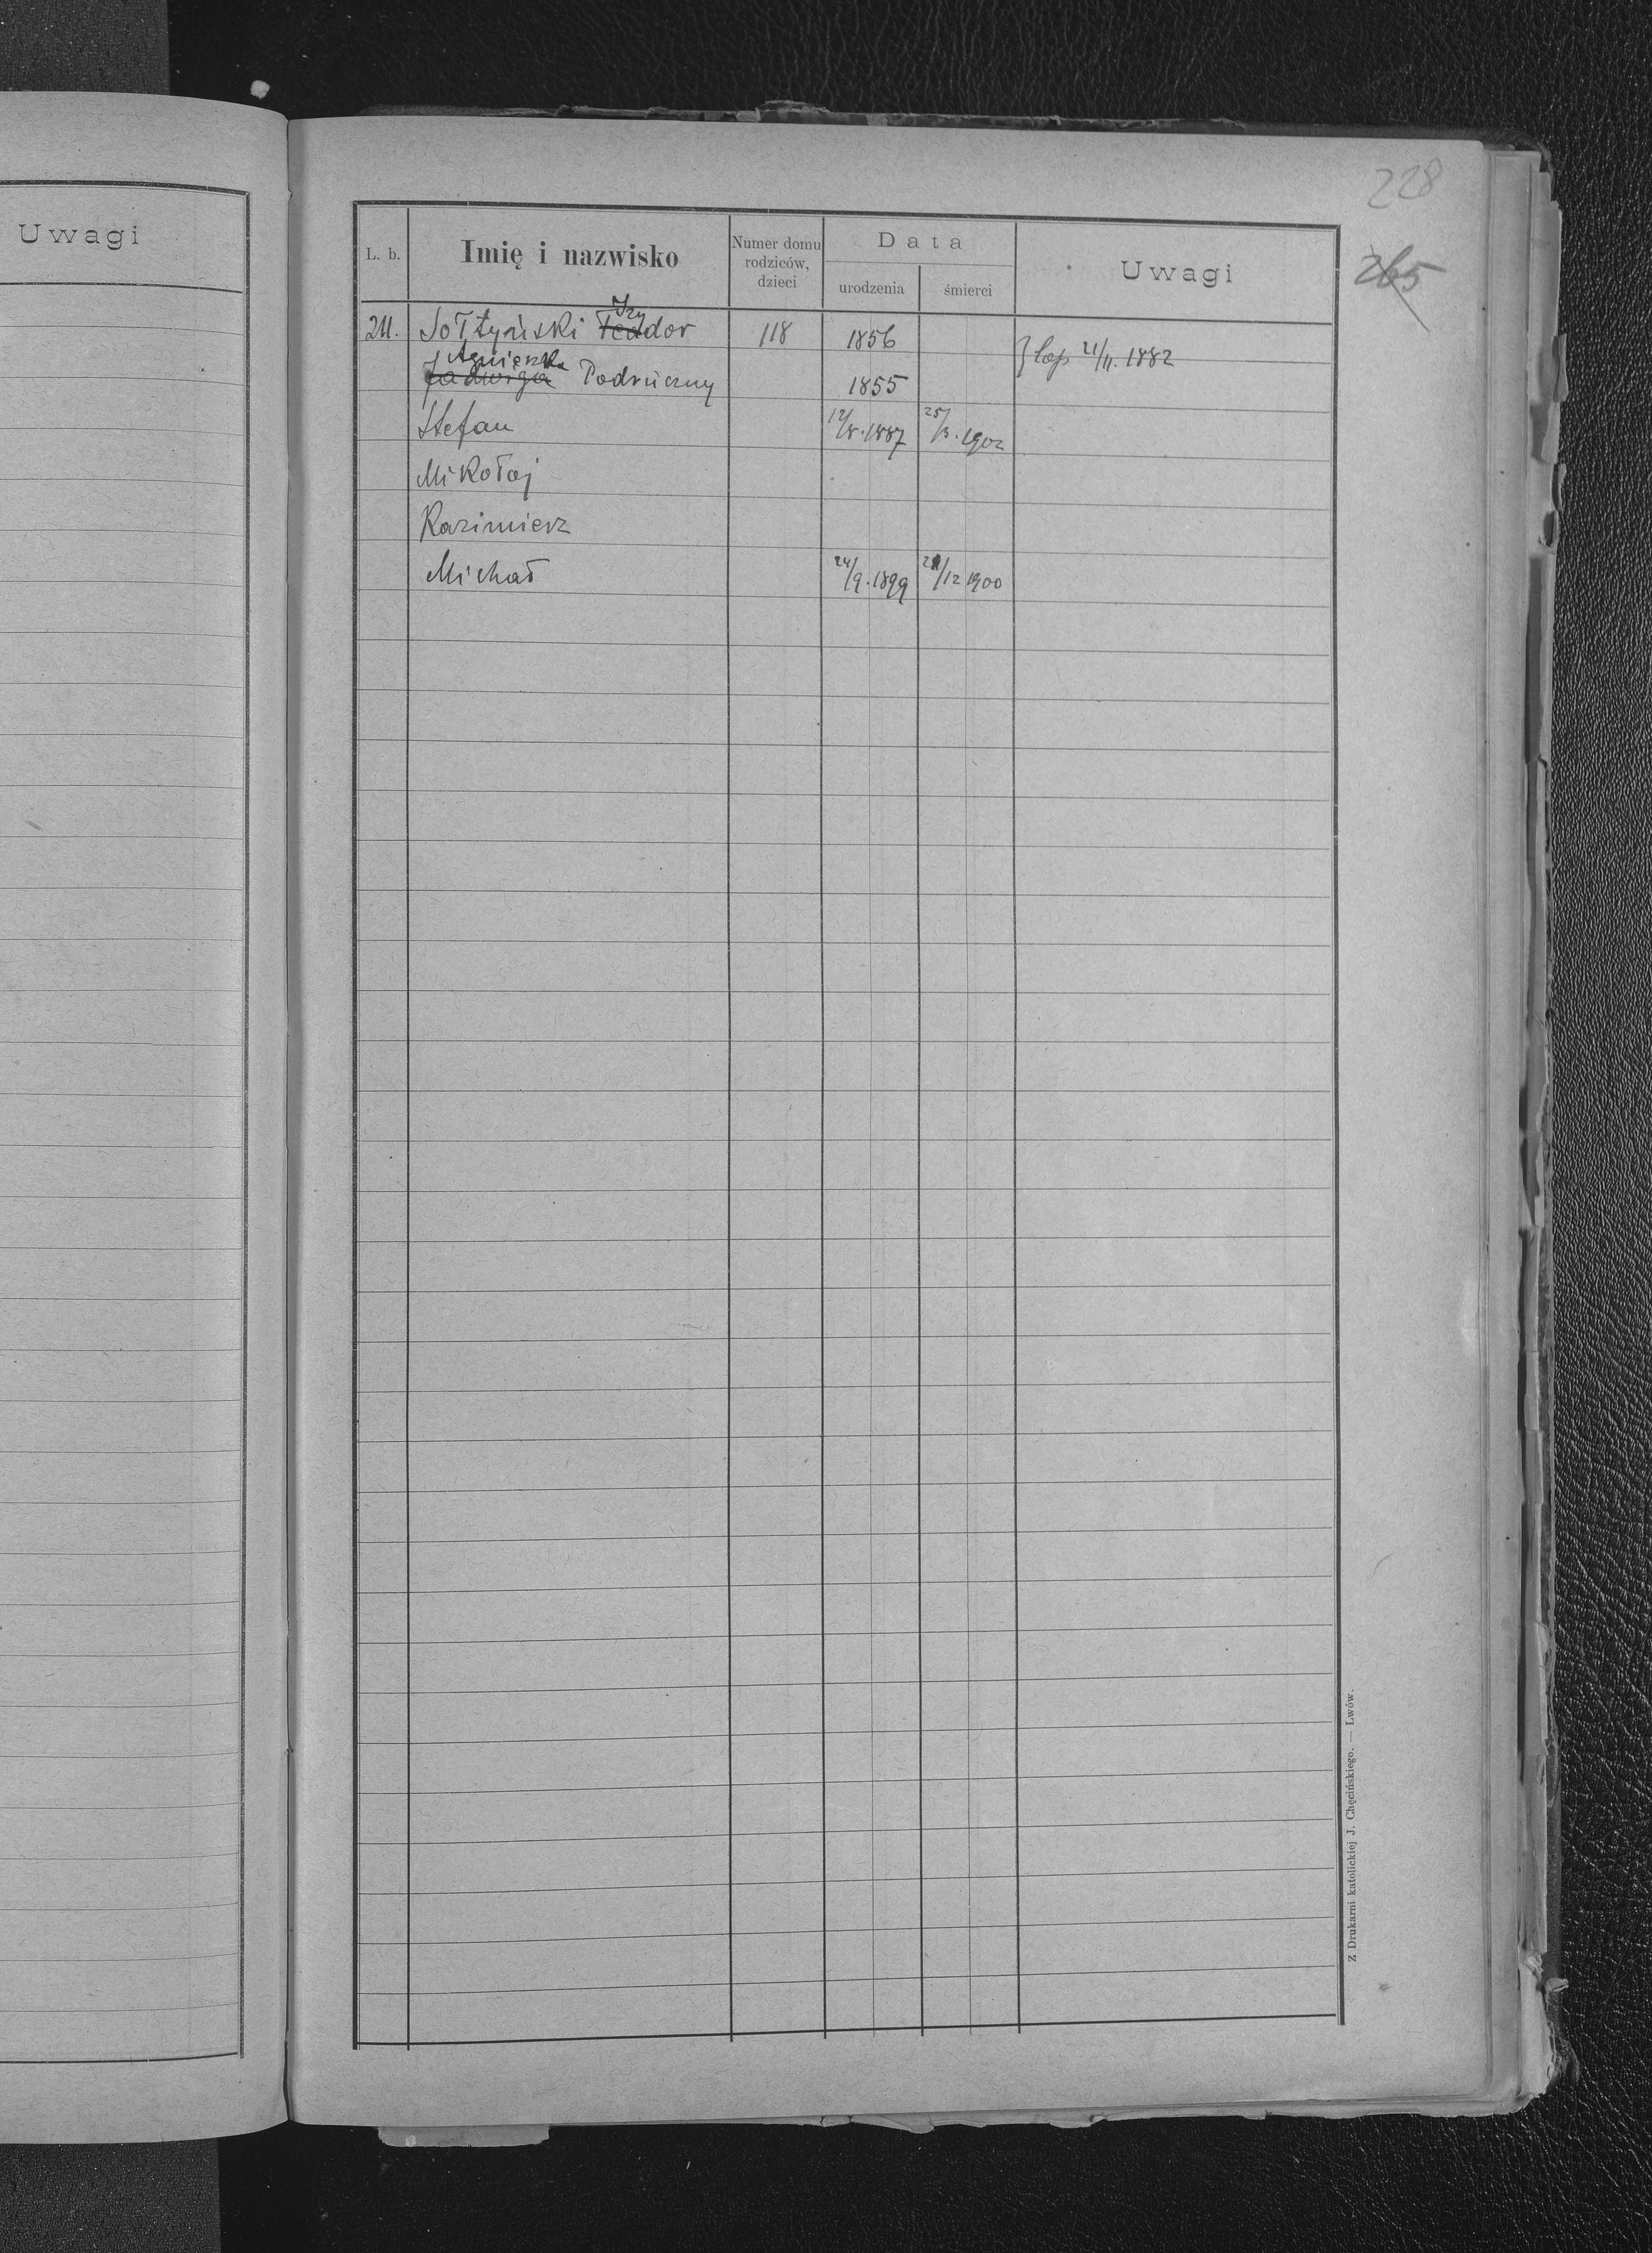 Uwagi
228
265
L. b.
Imię i nazwisko
Numer domu rodziców, dzieci
Data
urodzenia
śmierci
Uwagi
Izy
211. Sołtyński Teodor 118 1856
Agnieszka
Jadwiga Podruczny 1855 } cop 21/11. 1882
Stefan 12/8. 1887 25/3. 1902
Mikołaj
Kazimierz
Michał 24/9. 1899 12 1900
Z Drukarni katolickiej J. Chęcińskiego. — Lwów.